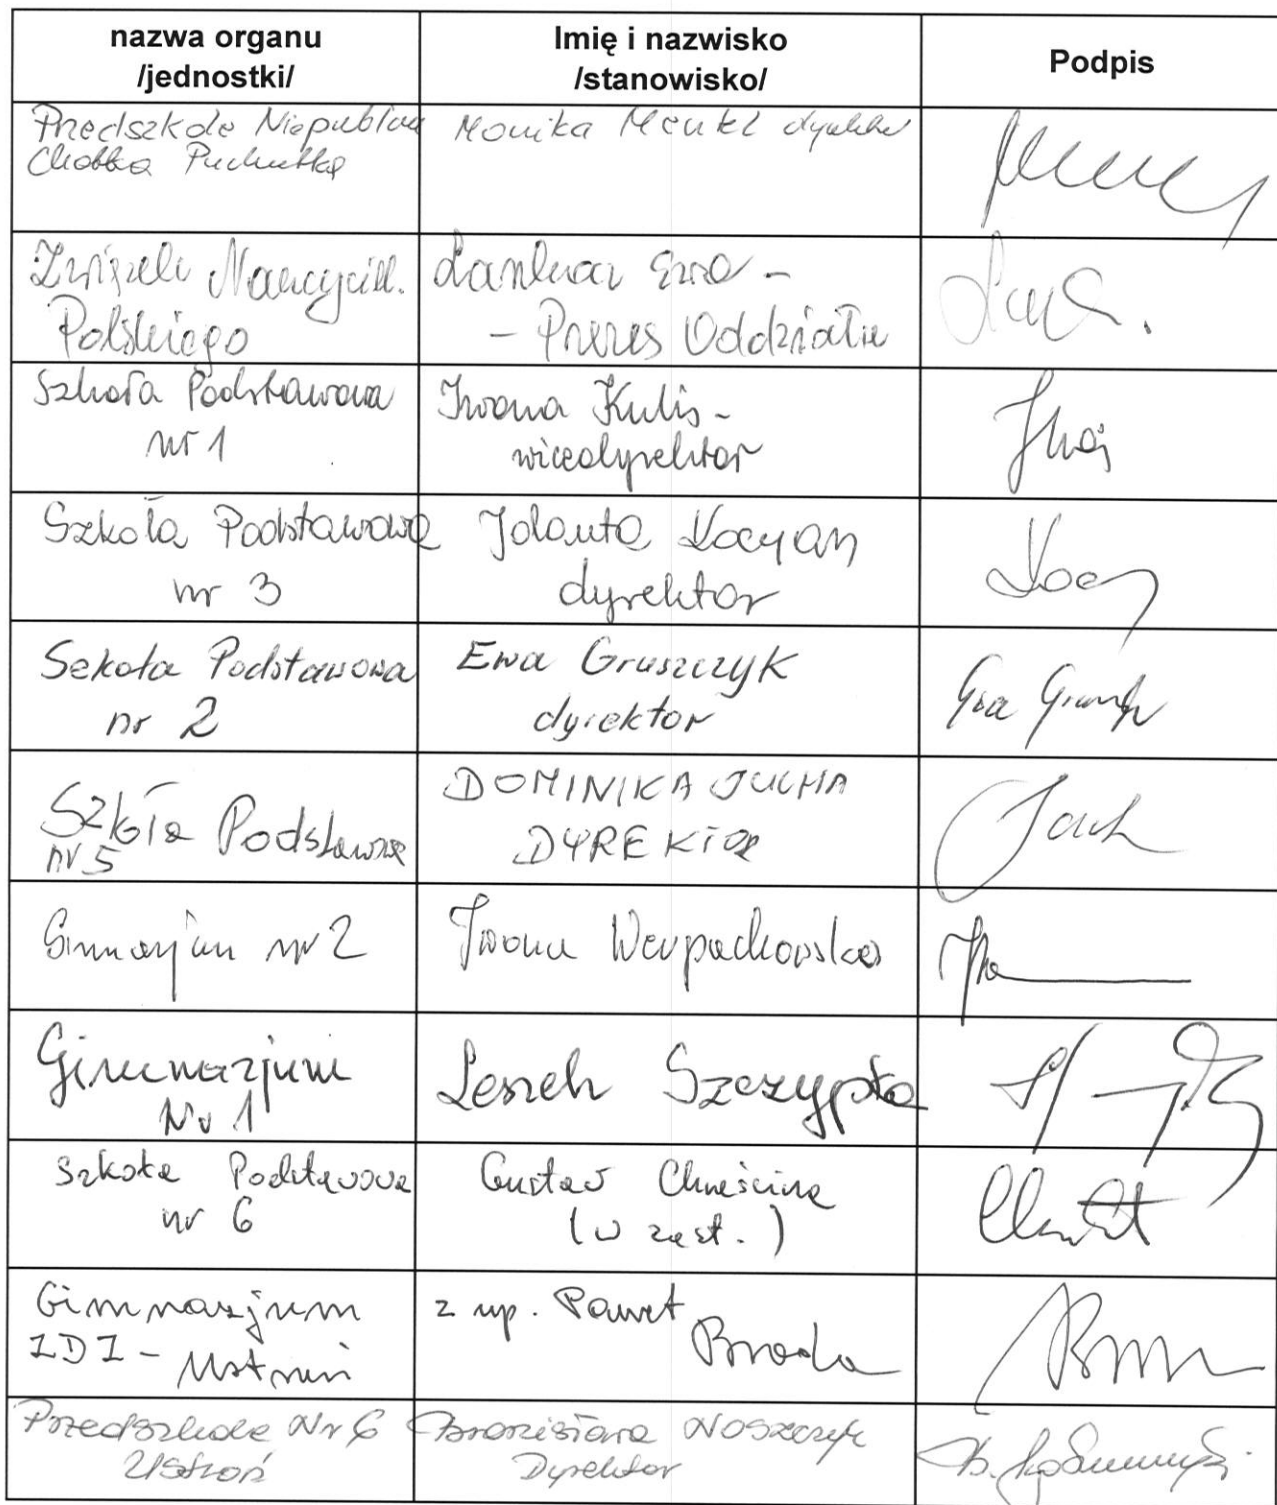 nazwa organu
/jednostki/
Imię i nazwisko
/stanowisko/
Podpis
Przedszkole
Monika dyrektor
Polskiego
- Prezes Oddziału
Szkoła Podstawowa
nr 1
Iwona Kulis -
wicedyrektor
Szkoła Podstawowa
nr 3
Jolanta Kocyan
dyrektor
Szkoła Podstawowa
nr 2
Ewa Gruszczyk
dyrektor
Ewa
Szkoła Podstawowa
nr 5
DOMINIKA JUCHA
DYREKTOR
Gimnazjum nr 2
Iwona Werpachowska
Gimnazjum
Nr 1
Leszek Szczypka
Szkoła Podstawowa
nr 6
Gustaw
(w zast.)
Gimnazjum
- Ustroń
z up. Paweł
Broda
Przedszkole Nr 6
Ustroń
Bronisława Noszczyk
Dyrektor